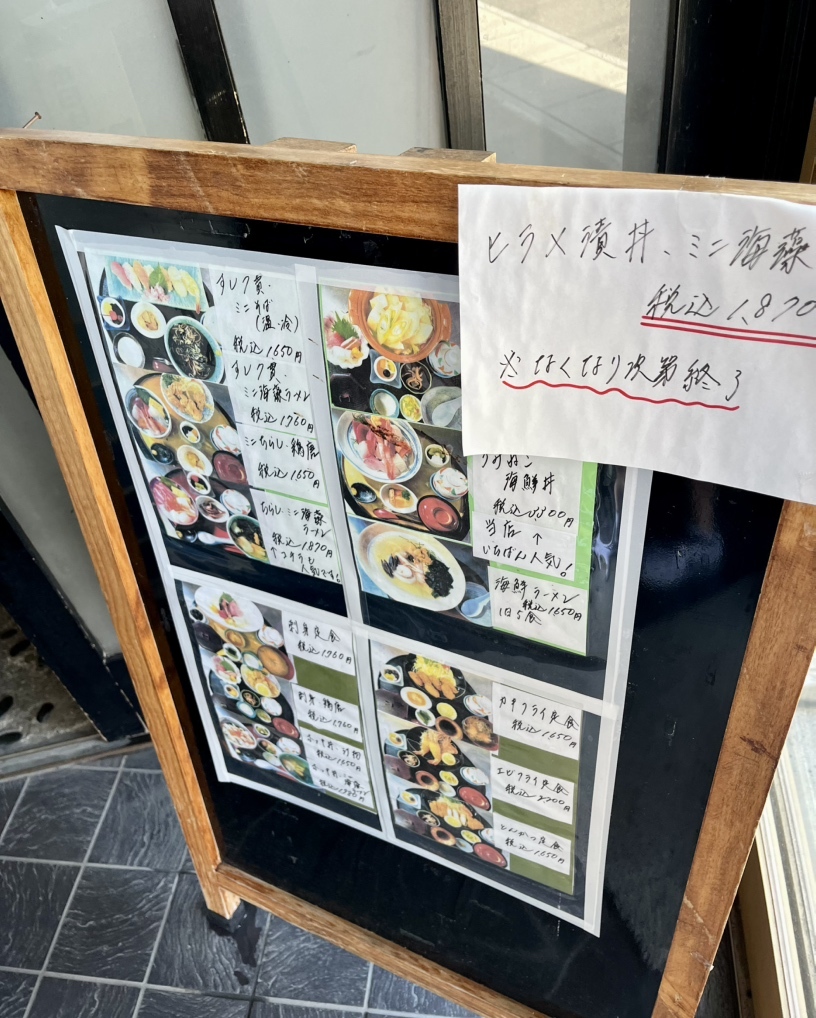 ヒラメ漬丼、ミニ海藻
税込1,870
※なくなり次第終了
すし7貫・
ミニそば
(温・冷)
税込1650円
すし7貫・
ミニ海藻ラーメン
税込1760円
ミニちらし・鶏唐
税込1650円
ちらし・ミニ海藻
ラーメン
税込1870円
↑コチラも
人気です!
海鮮丼
税込
当店 ↑
いちばん人気!
海鮮ラーメン
税込1650円
1日5食
刺身定食
税込1760円
刺身・鶏唐
税込1760円
税込1650円
カキフライ定食
税込1650円
エビフライ定食
税込2200円
とんかつ定食
税込1650円